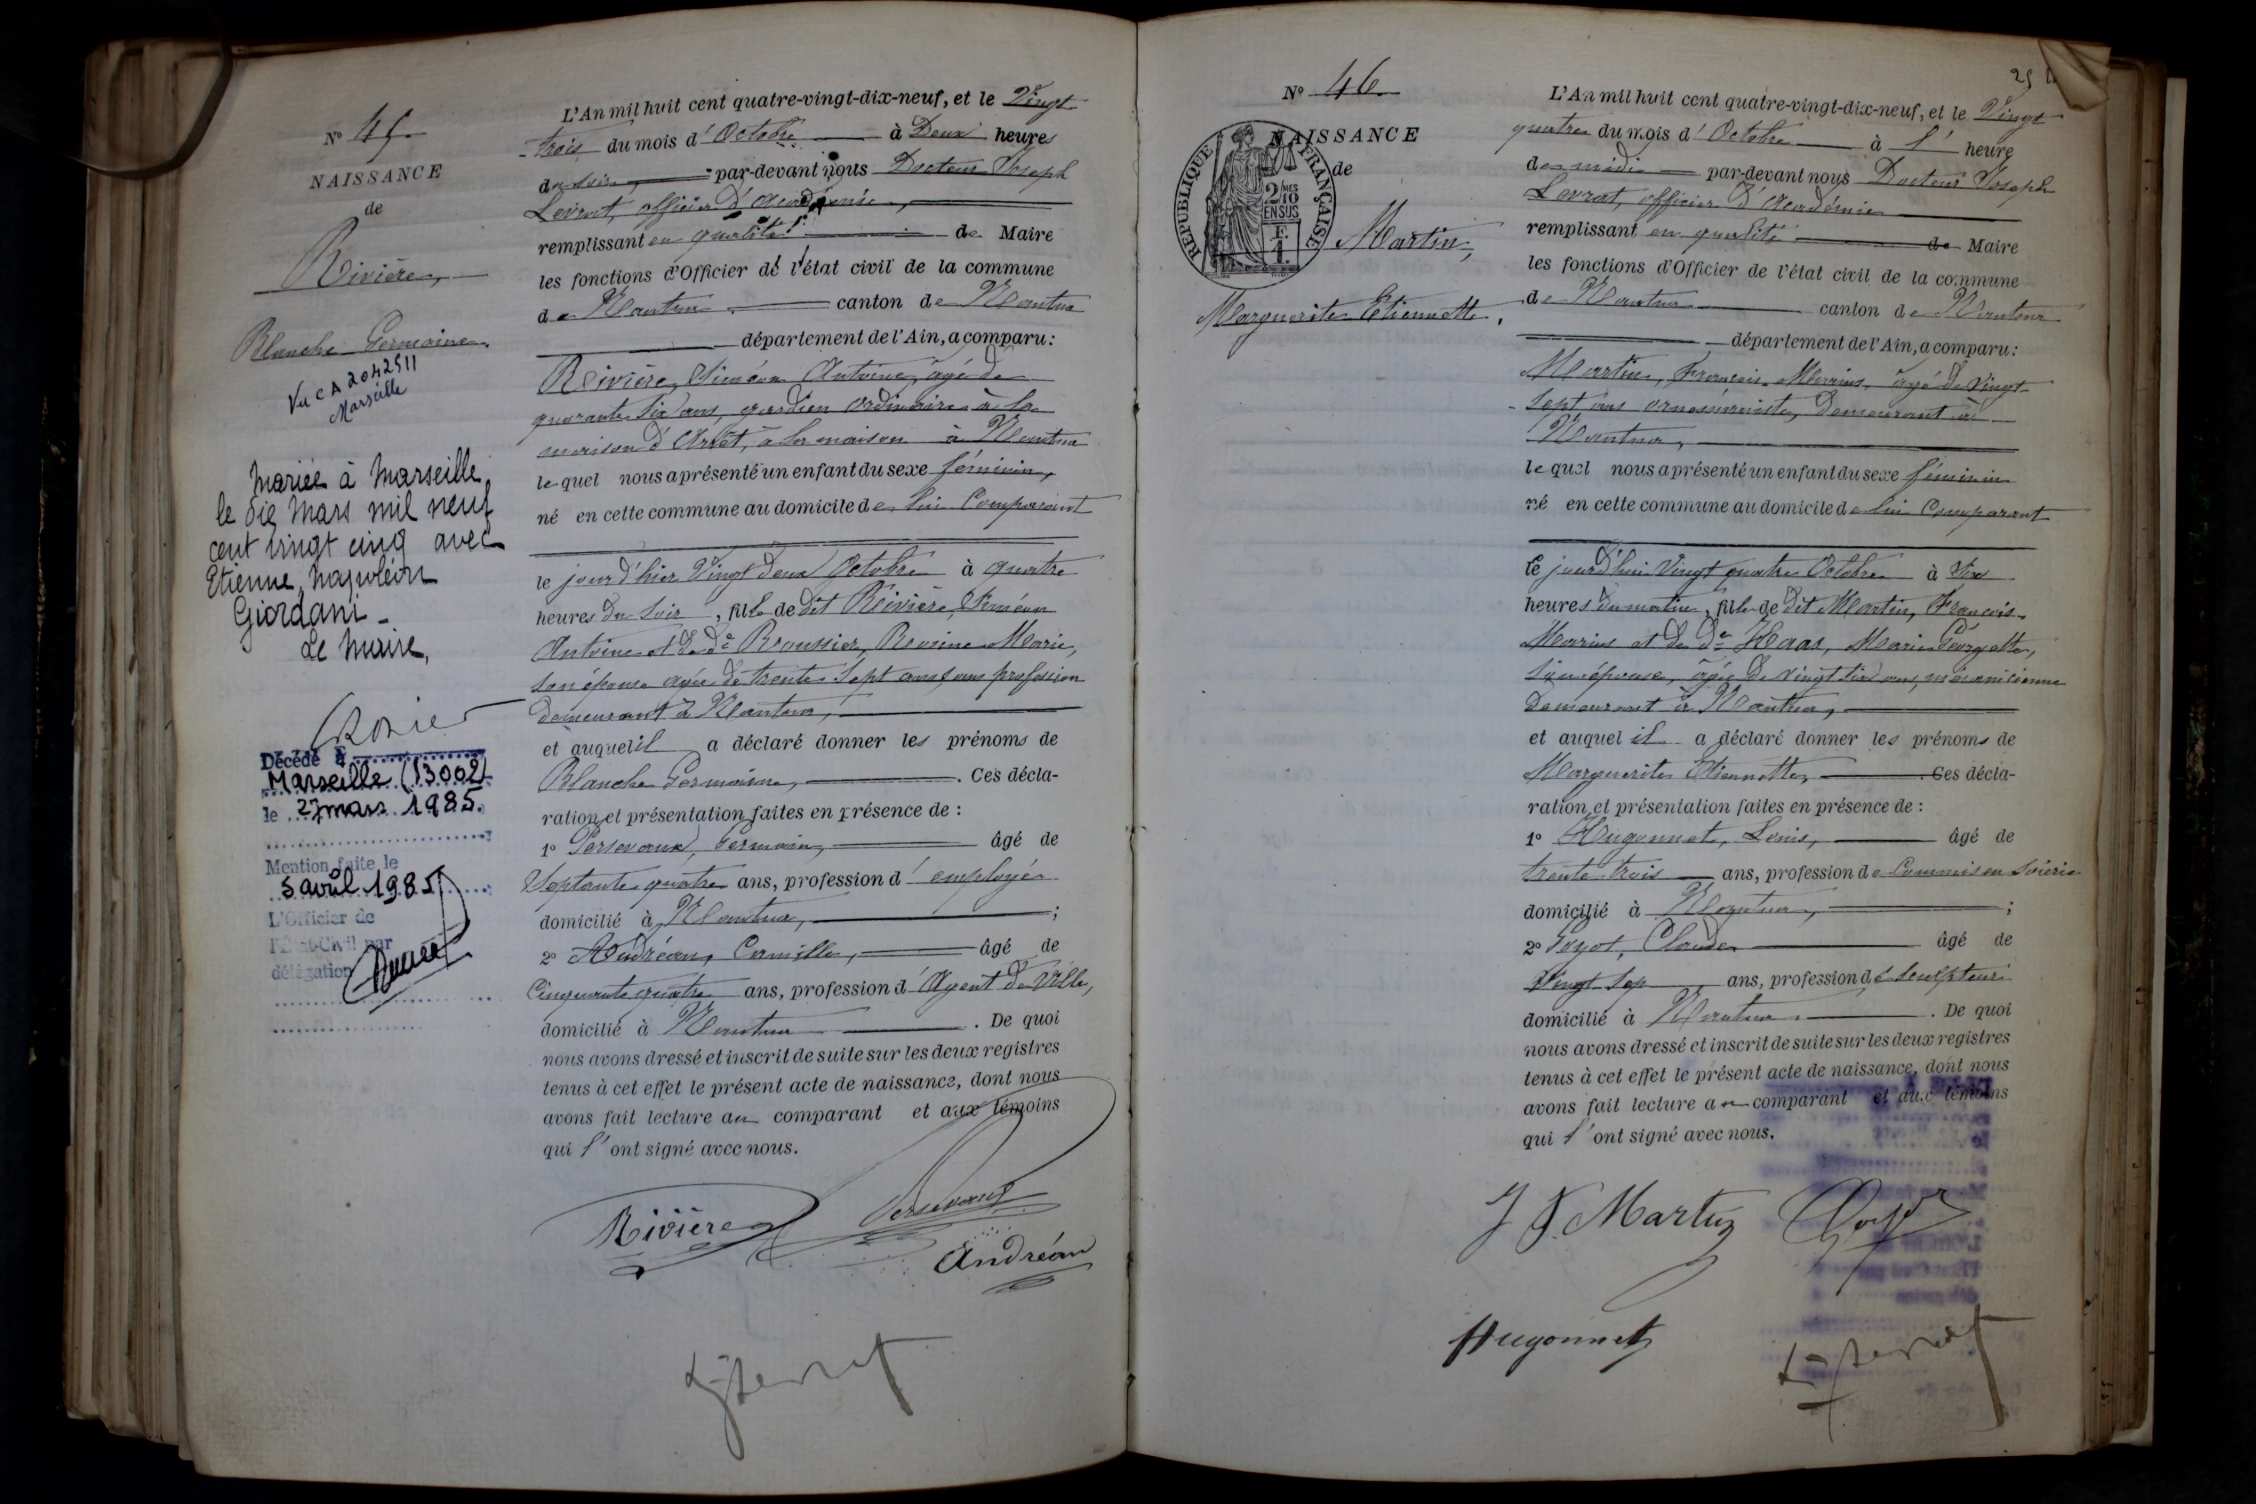 N° 45
NAISSANCE
de
Rivière,
Blanche Germaine.
Vu C A 2042511
Marseille
Mariée à Marseille
le dix Mars mil neuf
cent vingt cinq avec
Etienne, Napoléon
Giordani -
Le Maire,
Décédé à
Marseille (13002)
le 27 mars 1985.
Mention faite le
5 avril 1985
L'Officier de
l'Etat-Civil par
délégation
L'An mil huit cent quatre-vingt-dix-neuf, et le Vingt
trois du mois d'Octobre à Deux heures
du soir, par-devant nous Docteur Joseph
Levrat, officier d'Académie,
remplissant en qualité de Maire
les fonctions d'Officier de l'état civil de la commune
de Nantua canton de Nantua
département de l'Ain, a comparu:
Rivière, Siméon Antoine, âgé de
quarante six ans, gardien ordinaire à la
maison d'Arrêt, à la maison à Nantua
lequel nous a présenté un enfant du sexe féminin,
né en cette commune au domicile de lui Comparant
le jour d'hier Vingt deux Octobre à quatre
heures du soir, fille de dit Rivière, Siméon
Antoine et de de Broussier, Rosine Marie,
son épouse agée de trente sept ans, sans profession
demeurant à Nantua,
et auquel il a déclaré donner les prénoms de
Blanche Germaine, . Ces décla-
ration et présentation faites en présence de :
1° Persevaux, Germain, âgé de
Septante quatre ans, profession d'employé
domicilié à Nantua, ;
2° Andréan, Camille, âgé de
Cinquante quatre ans, profession d'Agent de Ville,
domicilié à Nantua . De quoi
nous avons dressé et inscrit de suite sur les deux registres
tenus à cet effet le présent acte de naissance, dont nous
avons fait lecture au comparant et aux témoins
qui l'ont signé avec nous.
Rivière
Andréan
25
N° 46
NAISSANCE
de
RÉPUBLIQUE FRANÇAISE
2/10 EN SUS
Martin,
Marguerite Etiennette.
L'An mil huit cent quatre-vingt-dix-neuf, et le Vingt
quatre du mois d'Octobre à l' heure
de midi par-devant nous Docteur Joseph
Levrat, officier d'Académie
remplissant en qualité de Maire
les fonctions d'Officier de l'état civil de la commune
de Nantua canton de Nantua
département de l'Ain, a comparu:
Martin, François Marius, âgé de Vingt
sept ans demeurant à
Nantua,
lequel nous a présenté un enfant du sexe féminin
né en cette commune au domicile de lui Comparant
le jourd'hui Vingt quatre Octobre à Six
heures du matin, fille de dit Martin, François
Marius et de de Haas, Marie Georgette,
son épouse, âgée de vingt six ans, mécanicienne
demeurant à Nantua,
et auquel il a déclaré donner les prénoms de
Marguerite Etiennette, . Ces décla-
ration et présentation faites en présence de :
1° Hugonnet, Louis, âgé de
trente trois ans, profession de Commis en soierie
domicilié à Nantua, ;
2° Claude âgé de
Vingt sep ans, profession de sculpteur
domicilié à Nantua. . De quoi
nous avons dressé et inscrit de suite sur les deux registres
tenus à cet effet le présent acte de naissance, dont nous
avons fait lecture au comparant et aux témoins
qui l'ont signé avec nous.
J F Martin
Hugonnet